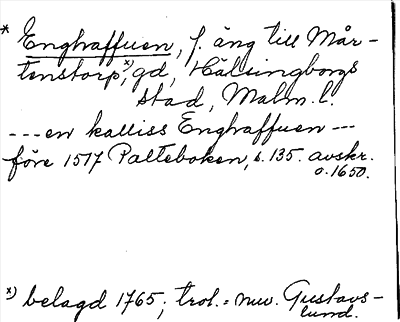 * Enghaffuen, f. äng till Mår-
tenstorp,ˣ⁾ gd, Hälsingborgs
stad, Malm. l.
---en kalliss Enghaffuen---
före 1517 Palteboken, s. 135. avskr.
o. 1650.
ˣ⁾ belagd 1765; trol. = nuv. Gustavs-
lund.